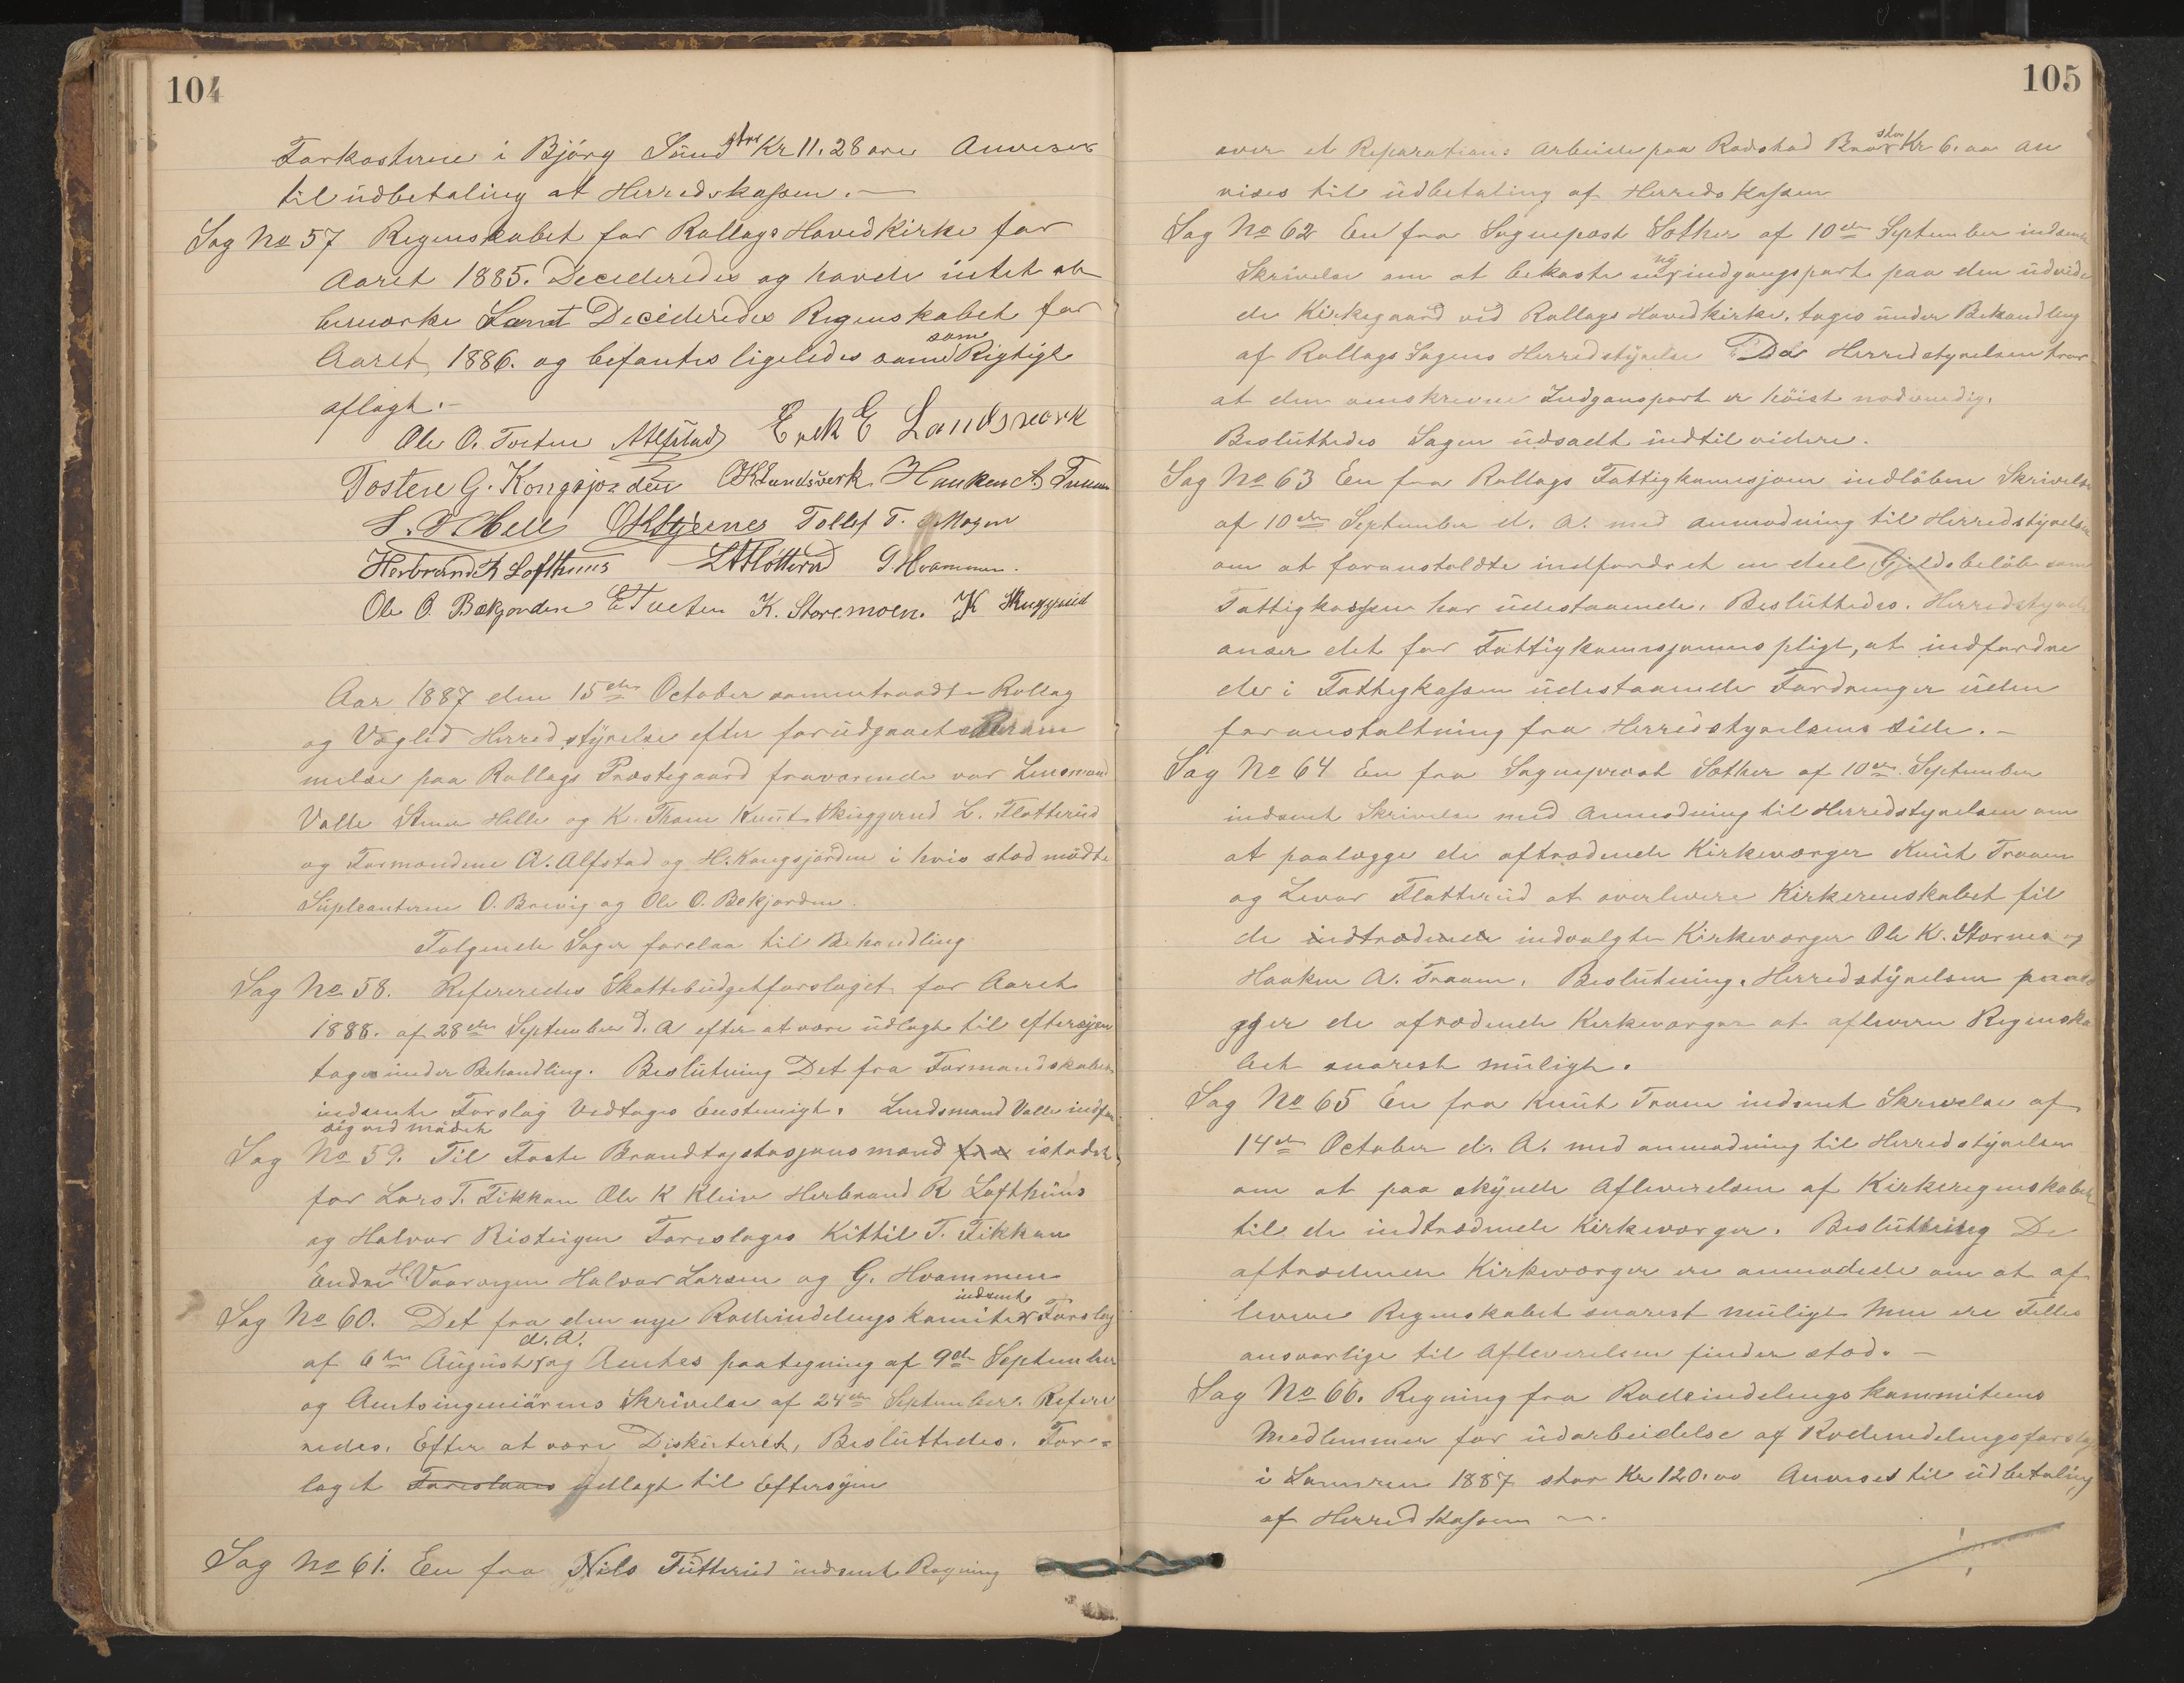 104
Forkosterne i Bjørg Sund stor Kr 11.28 øre Anvises
til udbetaling af Herredskassen. —
Sag No 57 Regnskabet for Rollags Hovedkirke for
Aaret 1885. Decideredes og havde intet at
bemærke Samt Decideredes Regnskabet for
Aaret 1886. og befantes ligeledes som Rigtigt
aflagt. —
Ole O. Tveten AAlfstad Erik E Landsverk
Tosten G. Kongsjorden OKLandsverk Haaken A. Traaen
S. P Helle OKBjerknes Tollef T. Mogen
Herbrand R Lofthuus L Flotterud G Hvammen.
Ole O. Bækjorden E Tveten K. Storemoen. K Skuggerud
Aar 1887 den 15de October sammentraadte Rollag
og Vegli Herredstyrelse efter forudgaaet Beram
melse paa Rollags Præstegaard fraværende var Lensmand
Valle Steen Helle og K. Traaen Knut Skuggerud L. Flotterud
og Formændene A. Alfstad og H. Kongsjorden i hvis sted mødte
Supleanterne O. Brevig og Ole O. Bekjorden.
Følgende Sager forelaa til Behandling
Sag No 58. Refereredes Skattebudgetforslaget for Aaret
1888. af 28de September d. A efter at være udlagt til eftersyn
tages under Behandling. Beslutning Det fra Formandskabet
indsente Forslag Vedtages Enstemigt. Lendsmand Valle indfan
sig ved mødet
Sag No 59. Til Faste Brandtagstasjons mænd for istedet
for Lars T. Fikkan Ole K Kleive Herbrand R Lofthuus
og Halvor Risteigen Foreslages Kittil T. Fikkan
Endre H. Vaarvigen Halvor Larsen og G. Hvammen
Sag No 60. Det fra den nye Rodeindelings komite indsente Forslag
af 6te August d. A. og Amtes paategning af 9de September
og Amtsingeniørens Skrivelse af 24de September. Refere
redes. Efter at være Diskuteret, Besluttedes. Fors=
laget Foreslaaes Udlagt til Eftersyn
Sag No 61. En fra Nils Tutterud indsent Regning
105
over et Reparations Arbeide paa Rodstad Bro stor Kr 6.00 an
vises til udbetaling af Herreds Kassen
Sag No 62 En fra Sognepræst Sother af 10de September indsent
Skrivelse om at bekoste ny indgangsport paa den udvide
de Kirkegaard ved Rollags Hovedkirke. tages under Behandling
af Rollags Sogns Herredstyrelse Da Herredstyrelsen tror
at den omskrevne Indgansport er høist nødvendig.
Besluttedes Sagen udsadt indtil videre.
Sag No 63 En fra Rollags Fattigkomisjon indløben Skrivelse
af 10de September d. A. med anmodning til Herredstyrelsen
om at foranstaldte indfordret en deel Gjeldsbeløb som
Fattigkassen har udestaaende. Besluttedes. Herredstyrels
anser det for Fattigkomisjonens pligt, at indfordre
de i Fattigkassen udestaaende Fordringer uden
foranstaltning fra Herredstyrelsens side. —
Sag No 64 En fra Sogneprest Sother af 10de September
indsent Skrivelse med Anmodning til Herredstyrelsen om
at paalægge de aftrædende Kirkeværger Knut Traaen
og Levor Flotterud at overlevere Kirkerenskabet til
de indtrædende indvalgte Kirkeværger Ole K. Stormo og
Haaken A. Traaen. Beslutning. Herredstyrelsen paalæ
gger de aftrædende Kirkeværger at aflevere Regnska
bet snarest muligt.
Sag No 65 En fra Knut Traaen indsent Skrivelse af
14de October d. A. med anmodning til Herredstyrelsen
om at paa skynde Afleverelsen af Kirkeregnskabet
til de indtrædende Kirkeværger. Beslutning De
aftrædende Kirkeværger er anmodede om at af
levere Regnskabet snarest muligt Men ere Felles
ansvarlige til Afleverelsen finder sted. —
Sag No 66. Regning fra Rodeindelings kommiteens
Medlemmer for udarbeidelse af Rodeindelingsforslag
i Sommeren 1887 stor Kr 120.00 Anvises til udbetaling
af Herredkassen —.